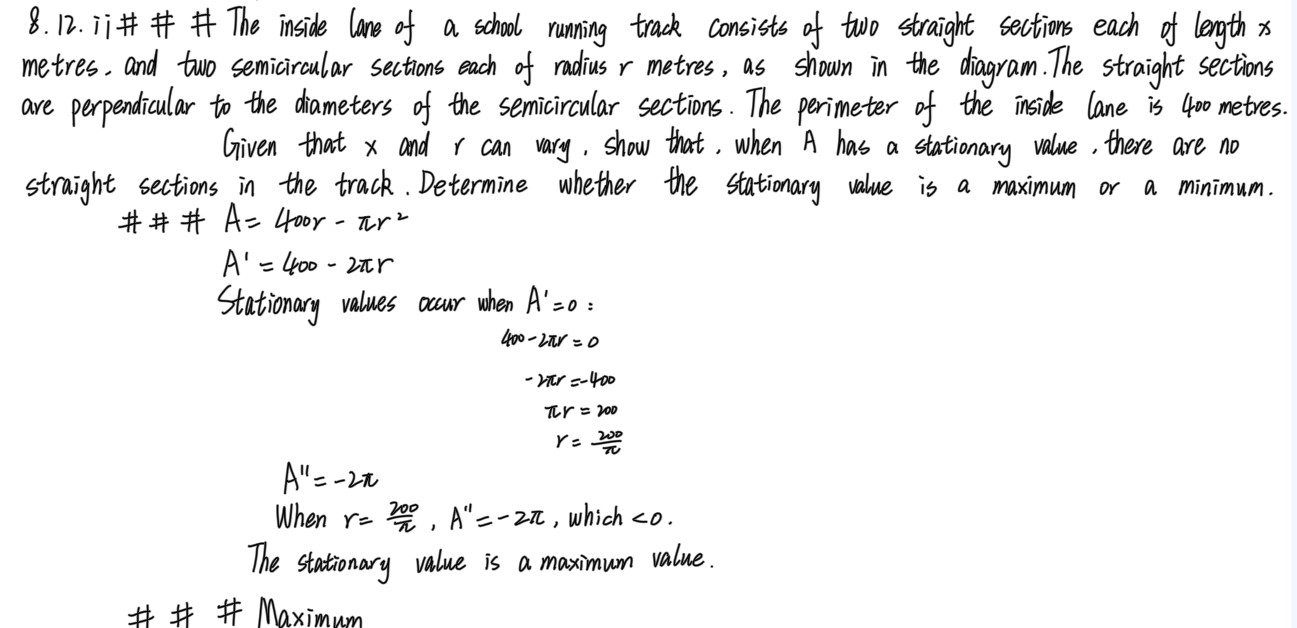 8.12.ii # # # The inside lane of a school running track consists of two straight sections each of length x
metres, and two semicircular sections each of radius r metres, as shown in the diagram. The straight sections
are perpendicular to the diameters of the semicircular sections. The perimeter of the inside lane is 400 metres.
Given that x and r can vary, show that, when A has a stationary value, there are no
straight sections in the track. Determine whether the stationary value is a maximum or a minimum.
# # # A = 400r - πr²
A' = 400 - 2πr
Stationary values occur when A' = 0 :
400 - 2πr = 0
- 2πr = -400
πr = 200
r = 200/π
A'' = -2π
When r = 200/π , A'' = -2π , which < 0 .
The stationary value is a maximum value .
# # # Maximum